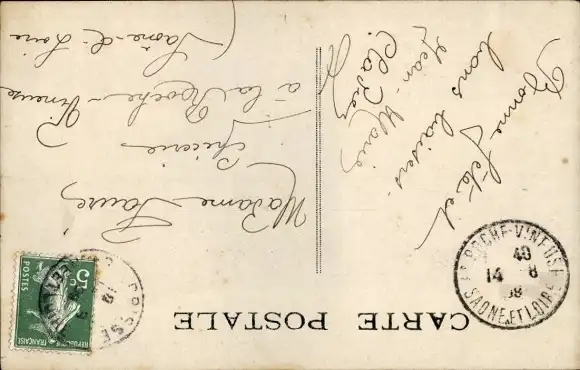 CARTE POSTALE
Bonne fête et
bons baisers.
Jean-Marie
Madame Faure
Epicerie
à la Roche-Vineuse
(Saône-&-Loire
LA ROCHE-VINEUSE
40
14 8
08
SAONE-ET-LOIRE
5c
POSTES
REPUBLIQUE FRANÇAISE